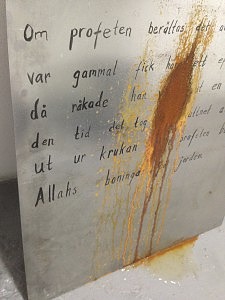 Om profeten berättas det a
var gammal fick han ett ep
då råkade han ut en
den tid det tog vattnet a
ut ur krukan profeten b
Allahs boninga jorden